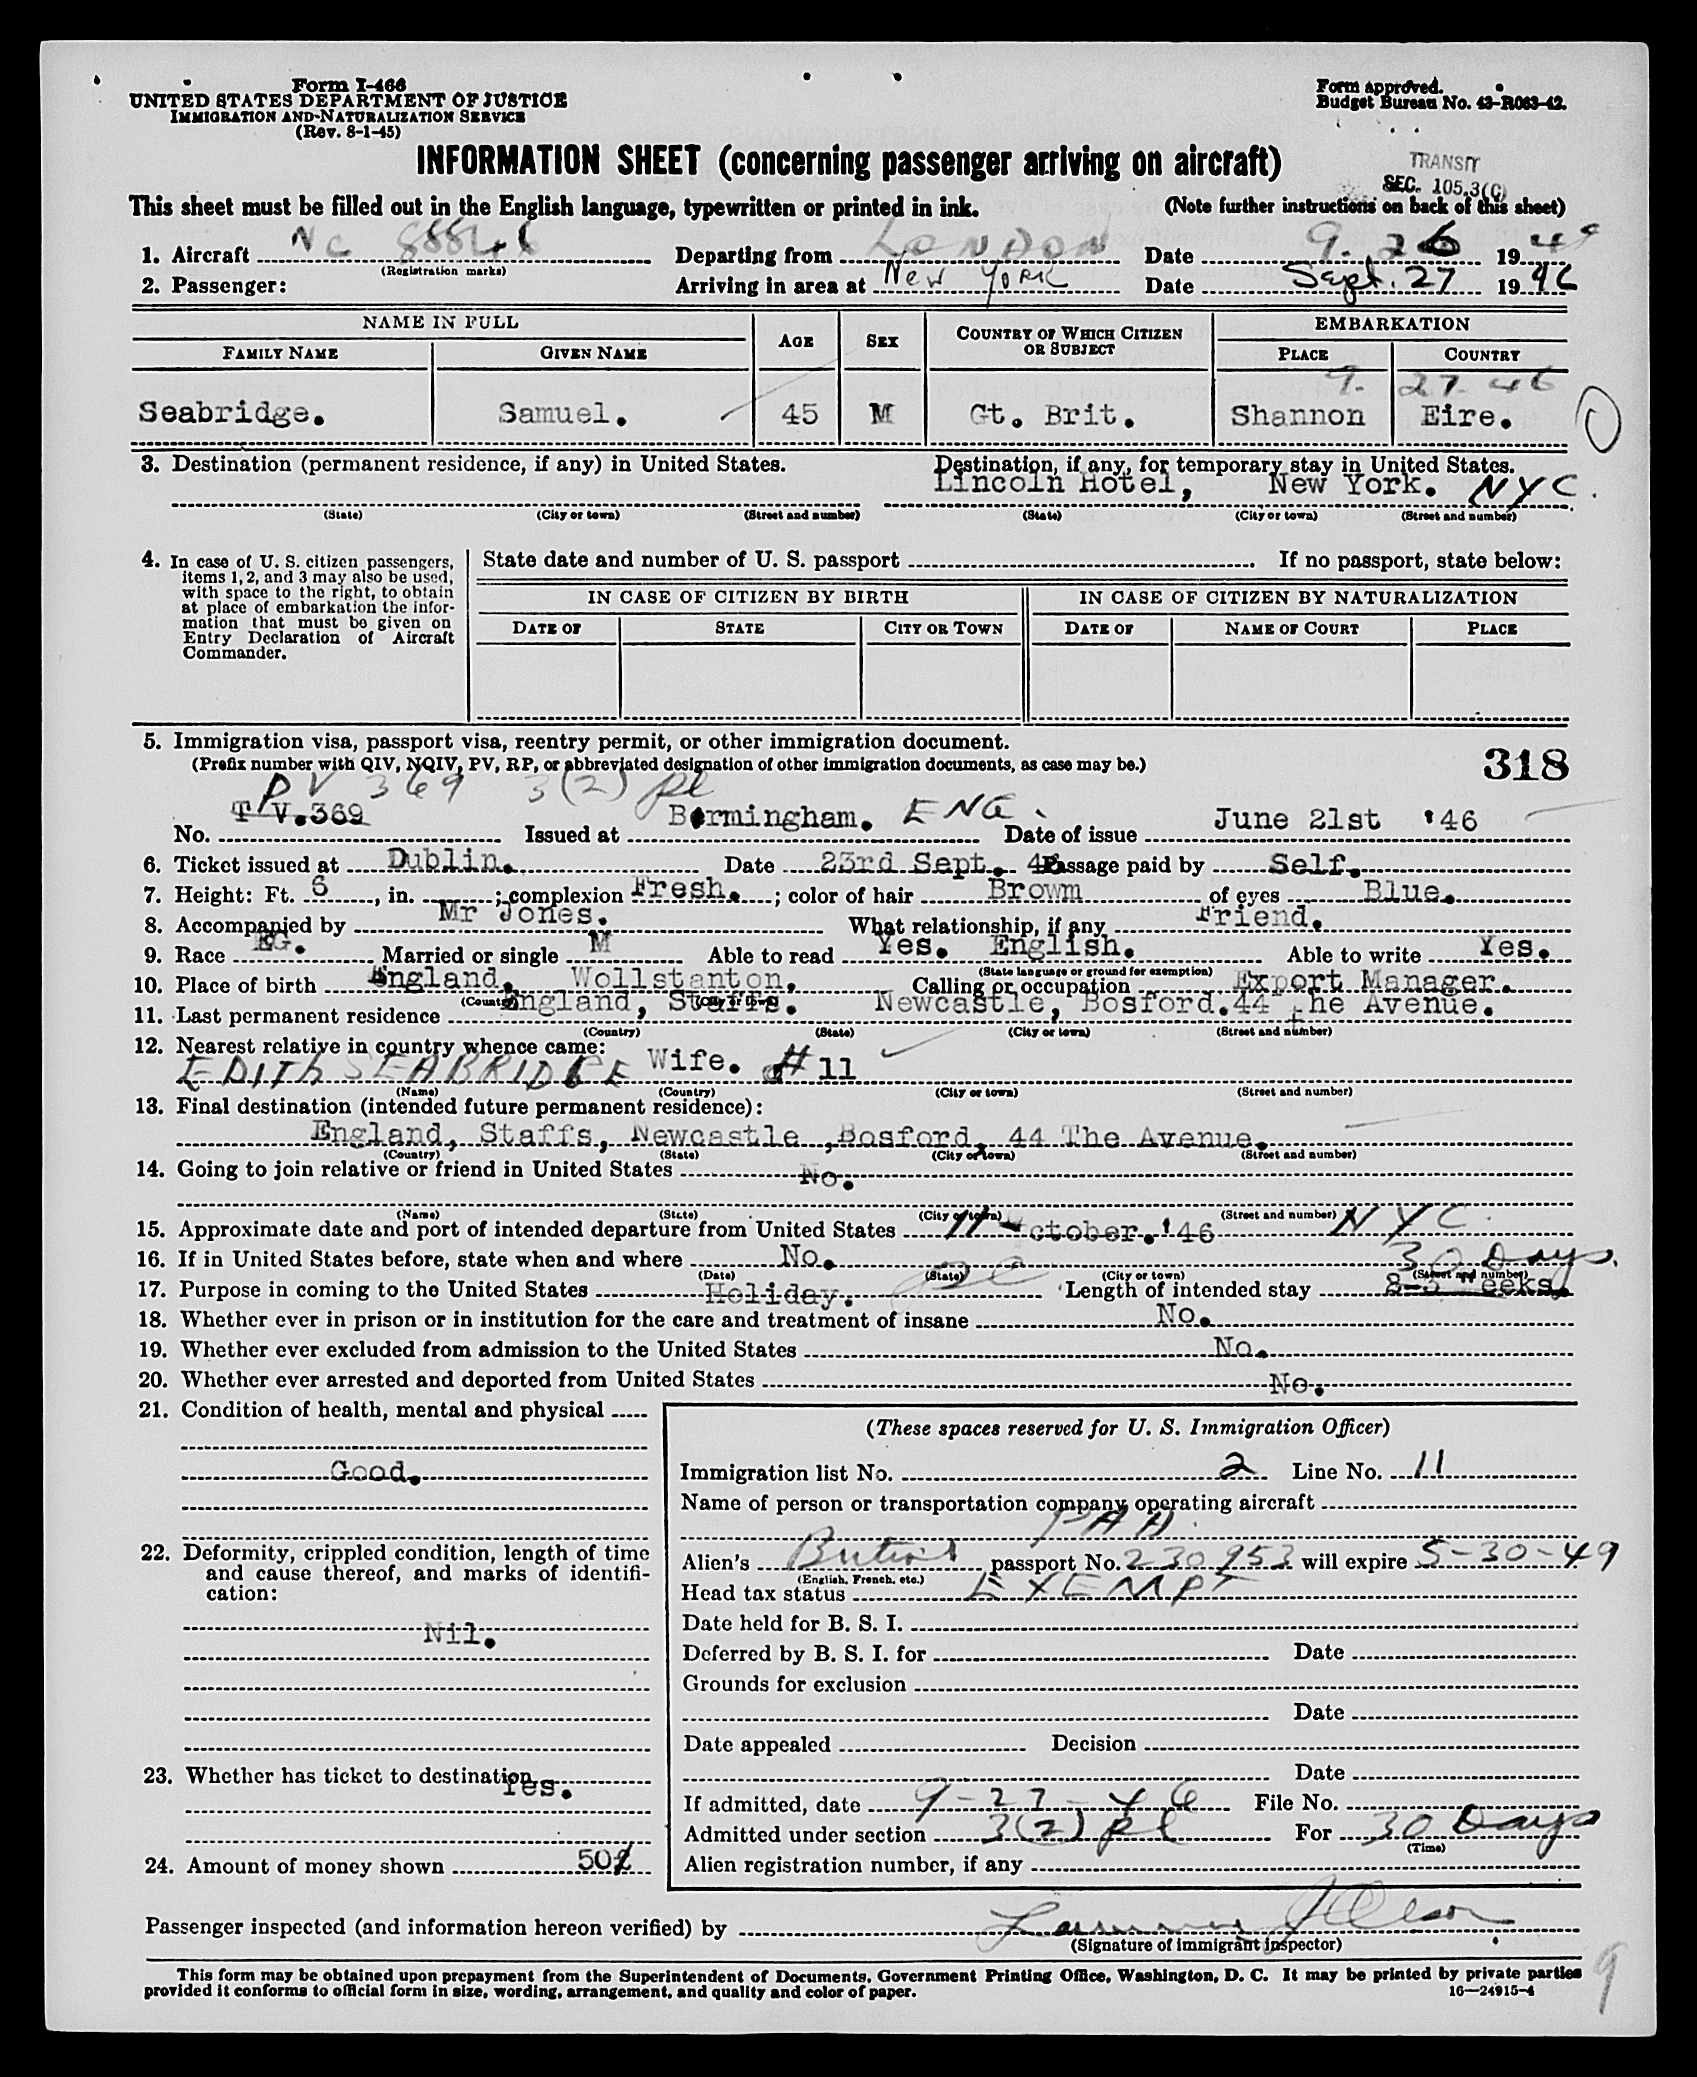 Form I-466
UNITED STATES DEPARTMENT OF JUSTICE
IMMIGRATION AND NATURALIZATION SERVICE
(Rev. 8-1-45)
Form approved.
Budget Bureau No. 43-R063-42.
INFORMATION SHEET (concerning passenger arriving on aircraft)
TRANSIT
SEC. 105.3(C)
This sheet must be filled out in the English language, typewritten or printed in ink. (Note further instructions on back of this sheet)
1. Aircraft NC 88846 Departing from LONDON Date 9. 26 19
(Registration marks)
2. Passenger: Arriving in area at New York Date Sept. 27 1946
NAME IN FULL AGE SEX COUNTRY OF WHICH CITIZEN OR SUBJECT EMBARKATION
FAMILY NAME GIVEN NAME PLACE COUNTRY
9. 27. 46
Seabridge. Samuel. 45 M Gt. Brit. Shannon Eire.
3. Destination (permanent residence, if any) in United States. Destination, if any, for temporary stay in United States.
Lincoln Hotel, New York. NYC.
(State) (City or town) (Street and number) (State) (City or town) (Street and number)
4. In case of U. S. citizen passengers, items 1, 2, and 3 may also be used, with space to the right, to obtain at place of embarkation the information that must be given on Entry Declaration of Aircraft Commander.
State date and number of U. S. passport If no passport, state below:
IN CASE OF CITIZEN BY BIRTH IN CASE OF CITIZEN BY NATURALIZATION
DATE OF STATE CITY OR TOWN DATE OF NAME OF COURT PLACE
5. Immigration visa, passport visa, reentry permit, or other immigration document.
(Prefix number with QIV, NQIV, PV, RP, or abbreviated designation of other immigration documents, as case may be.)
318
PV 369 3(2) pl
No. T V.369 Issued at Birmingham. ENG. Date of issue June 21st '46
6. Ticket issued at Dublin. Date 23rd Sept. 46 Passage paid by Self.
7. Height: Ft. 6, in. ; complexion Fresh. ; color of hair Brown of eyes Blue.
8. Accompanied by Mr Jones. What relationship, if any Friend.
9. Race EG. Married or single M Able to read Yes. English. Able to write Yes.
(State language or ground for exemption)
10. Place of birth England. Wollstanton. Calling or occupation Export Manager.
(Country) (City or town)
11. Last permanent residence England, Staffs. Newcastle, Bosford.44 The Avenue.
(Country) (State) (City or town) (Street and number)
12. Nearest relative in country whence came:
EDITH SEABRIDGE Wife. # 11
(Name) (Country) (City or town) (Street and number)
13. Final destination (intended future permanent residence):
England, Staffs, Newcastle ,Bosford, 44 The Avenue.
(Country) (State) (City or town) (Street and number)
14. Going to join relative or friend in United States No.
(Name) (State) (City or town) (Street and number)
15. Approximate date and port of intended departure from United States 11- October. '46 NYC.
16. If in United States before, state when and where No.
(Date) (State) (City or town) (Street and number)
30 Days.
17. Purpose in coming to the United States Holiday. Length of intended stay
18. Whether ever in prison or in institution for the care and treatment of insane No.
19. Whether ever excluded from admission to the United States No.
20. Whether ever arrested and deported from United States No.
21. Condition of health, mental and physical
Good.
22. Deformity, crippled condition, length of time and cause thereof, and marks of identification:
Nil.
23. Whether has ticket to destination Yes.
24. Amount of money shown 50£
(These spaces reserved for U. S. Immigration Officer)
Immigration list No. 2 Line No. 11
Name of person or transportation company operating aircraft
PAA.
Alien's British passport No. 230953 will expire 5-30-49
(English, French, etc.)
Head tax status EXEMPT
Date held for B. S. I.
Deferred by B. S. I. for Date
Grounds for exclusion
Date
Date appealed Decision
Date
If admitted, date 9-27-46 File No.
Admitted under section 3(2) pl For 30 Days
(Time)
Alien registration number, if any
Passenger inspected (and information hereon verified) by
(Signature of immigrant inspector)
This form may be obtained upon prepayment from the Superintendent of Documents, Government Printing Office, Washington, D. C. It may be printed by private parties
provided it conforms to official form in size, wording, arrangement, and quality and color of paper. 16—24915-4
9